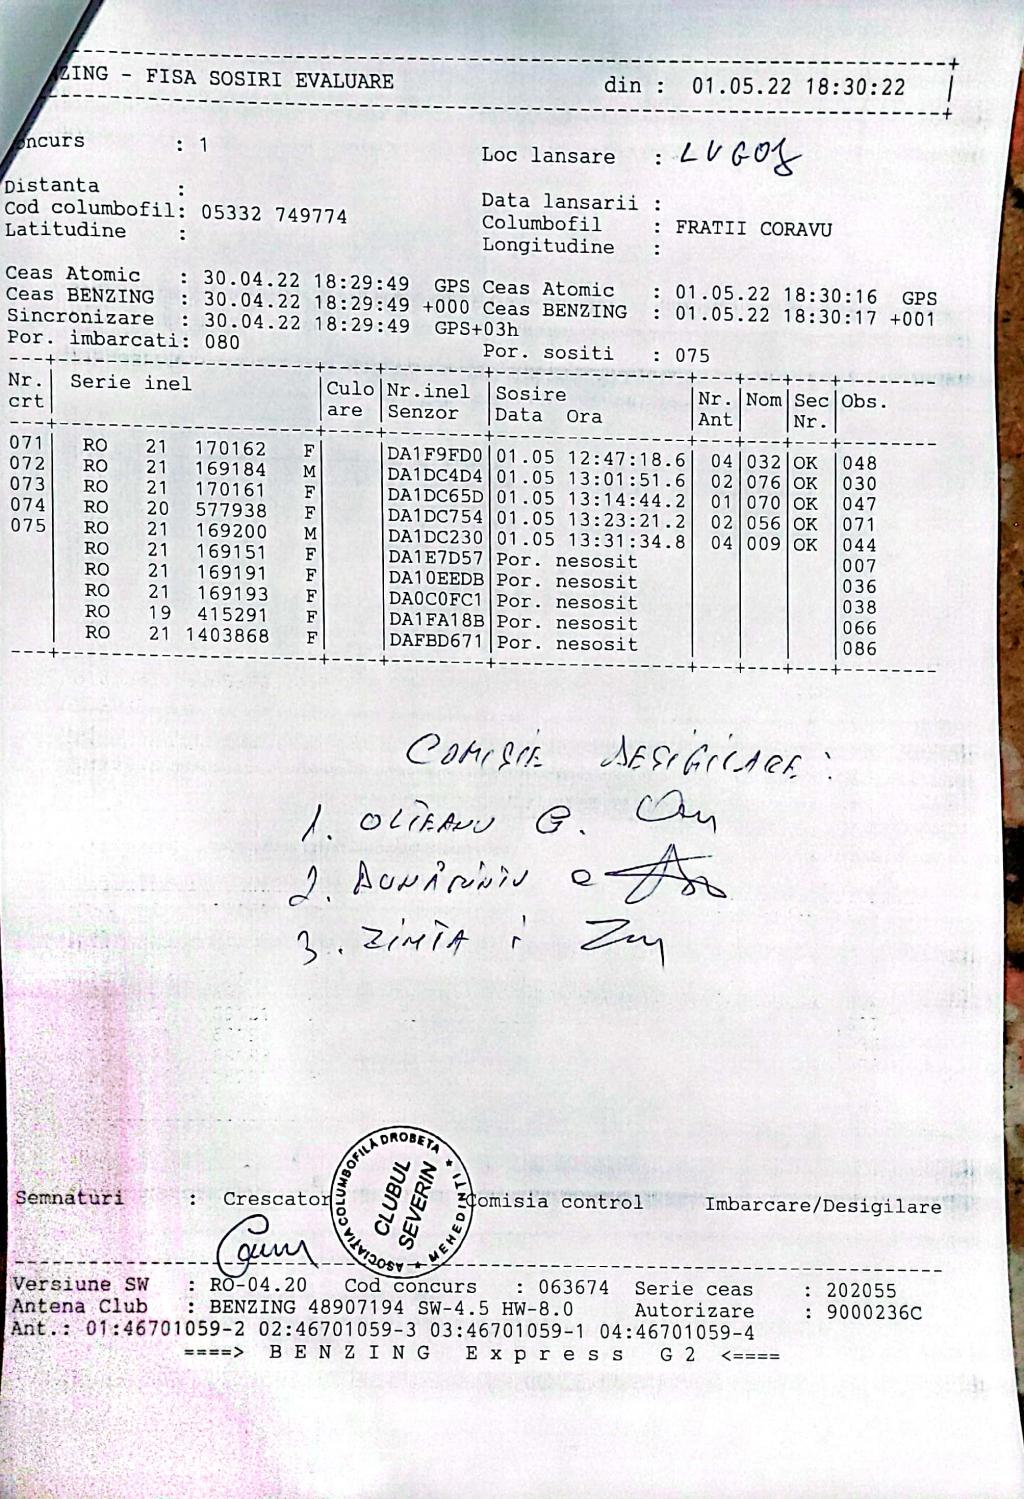 ZING - FISA SOSIRI EVALUARE din : 01.05.22 18:30:22
oncurs : 1 Loc lansare : LUGOJ
Distanta : Data lansarii :
Cod columbofil: 05332 749774 Columbofil : FRATII CORAVU
Latitudine : Longitudine :
Ceas Atomic : 30.04.22 18:29:49 GPS Ceas Atomic : 01.05.22 18:30:16 GPS
Ceas BENZING : 30.04.22 18:29:49 +000 Ceas BENZING : 01.05.22 18:30:17 +001
Sincronizare : 30.04.22 18:29:49 GPS+03h
Por. imbarcati: 080 Por. sositi : 075
Nr. Serie inel Culo Nr.inel Sosire Nr. Nom Sec Obs.
crt are Senzor Data Ora Ant Nr.
071 RO 21 170162 F DA1F9FD0 01.05 12:47:18.6 04 032 OK 048
072 RO 21 169184 M DA1DC4D4 01.05 13:01:51.6 02 076 OK 030
073 RO 21 170161 F DA1DC65D 01.05 13:14:44.2 01 070 OK 047
074 RO 20 577938 F DA1DC754 01.05 13:23:21.2 02 056 OK 071
075 RO 21 169200 M DA1DC230 01.05 13:31:34.8 04 009 OK 044
RO 21 169151 F DA1E7D57 Por. nesosit 007
RO 21 169191 F DA10EEDB Por. nesosit 036
RO 21 169193 F DA0C0FC1 Por. nesosit 038
RO 19 415291 F DA1FA18B Por. nesosit 066
RO 21 1403868 F DAFBD671 Por. nesosit 086
COMISIE DESIGILARE :
1. OLTEANU G.
2.
3. ZIMTA I
ASOCIAȚIA COLUMBOFILĂ DROBETA * MEHEDINȚI *
CLUBUL
SEVERIN
Semnaturi : Crescator Comisia control Imbarcare/Desigilare
Versiune SW : RO-04.20 Cod concurs : 063674 Serie ceas : 202055
Antena Club : BENZING 48907194 SW-4.5 HW-8.0 Autorizare : 9000236C
Ant.: 01:46701059-2 02:46701059-3 03:46701059-1 04:46701059-4
====> B E N Z I N G E x p r e s s G 2 <====